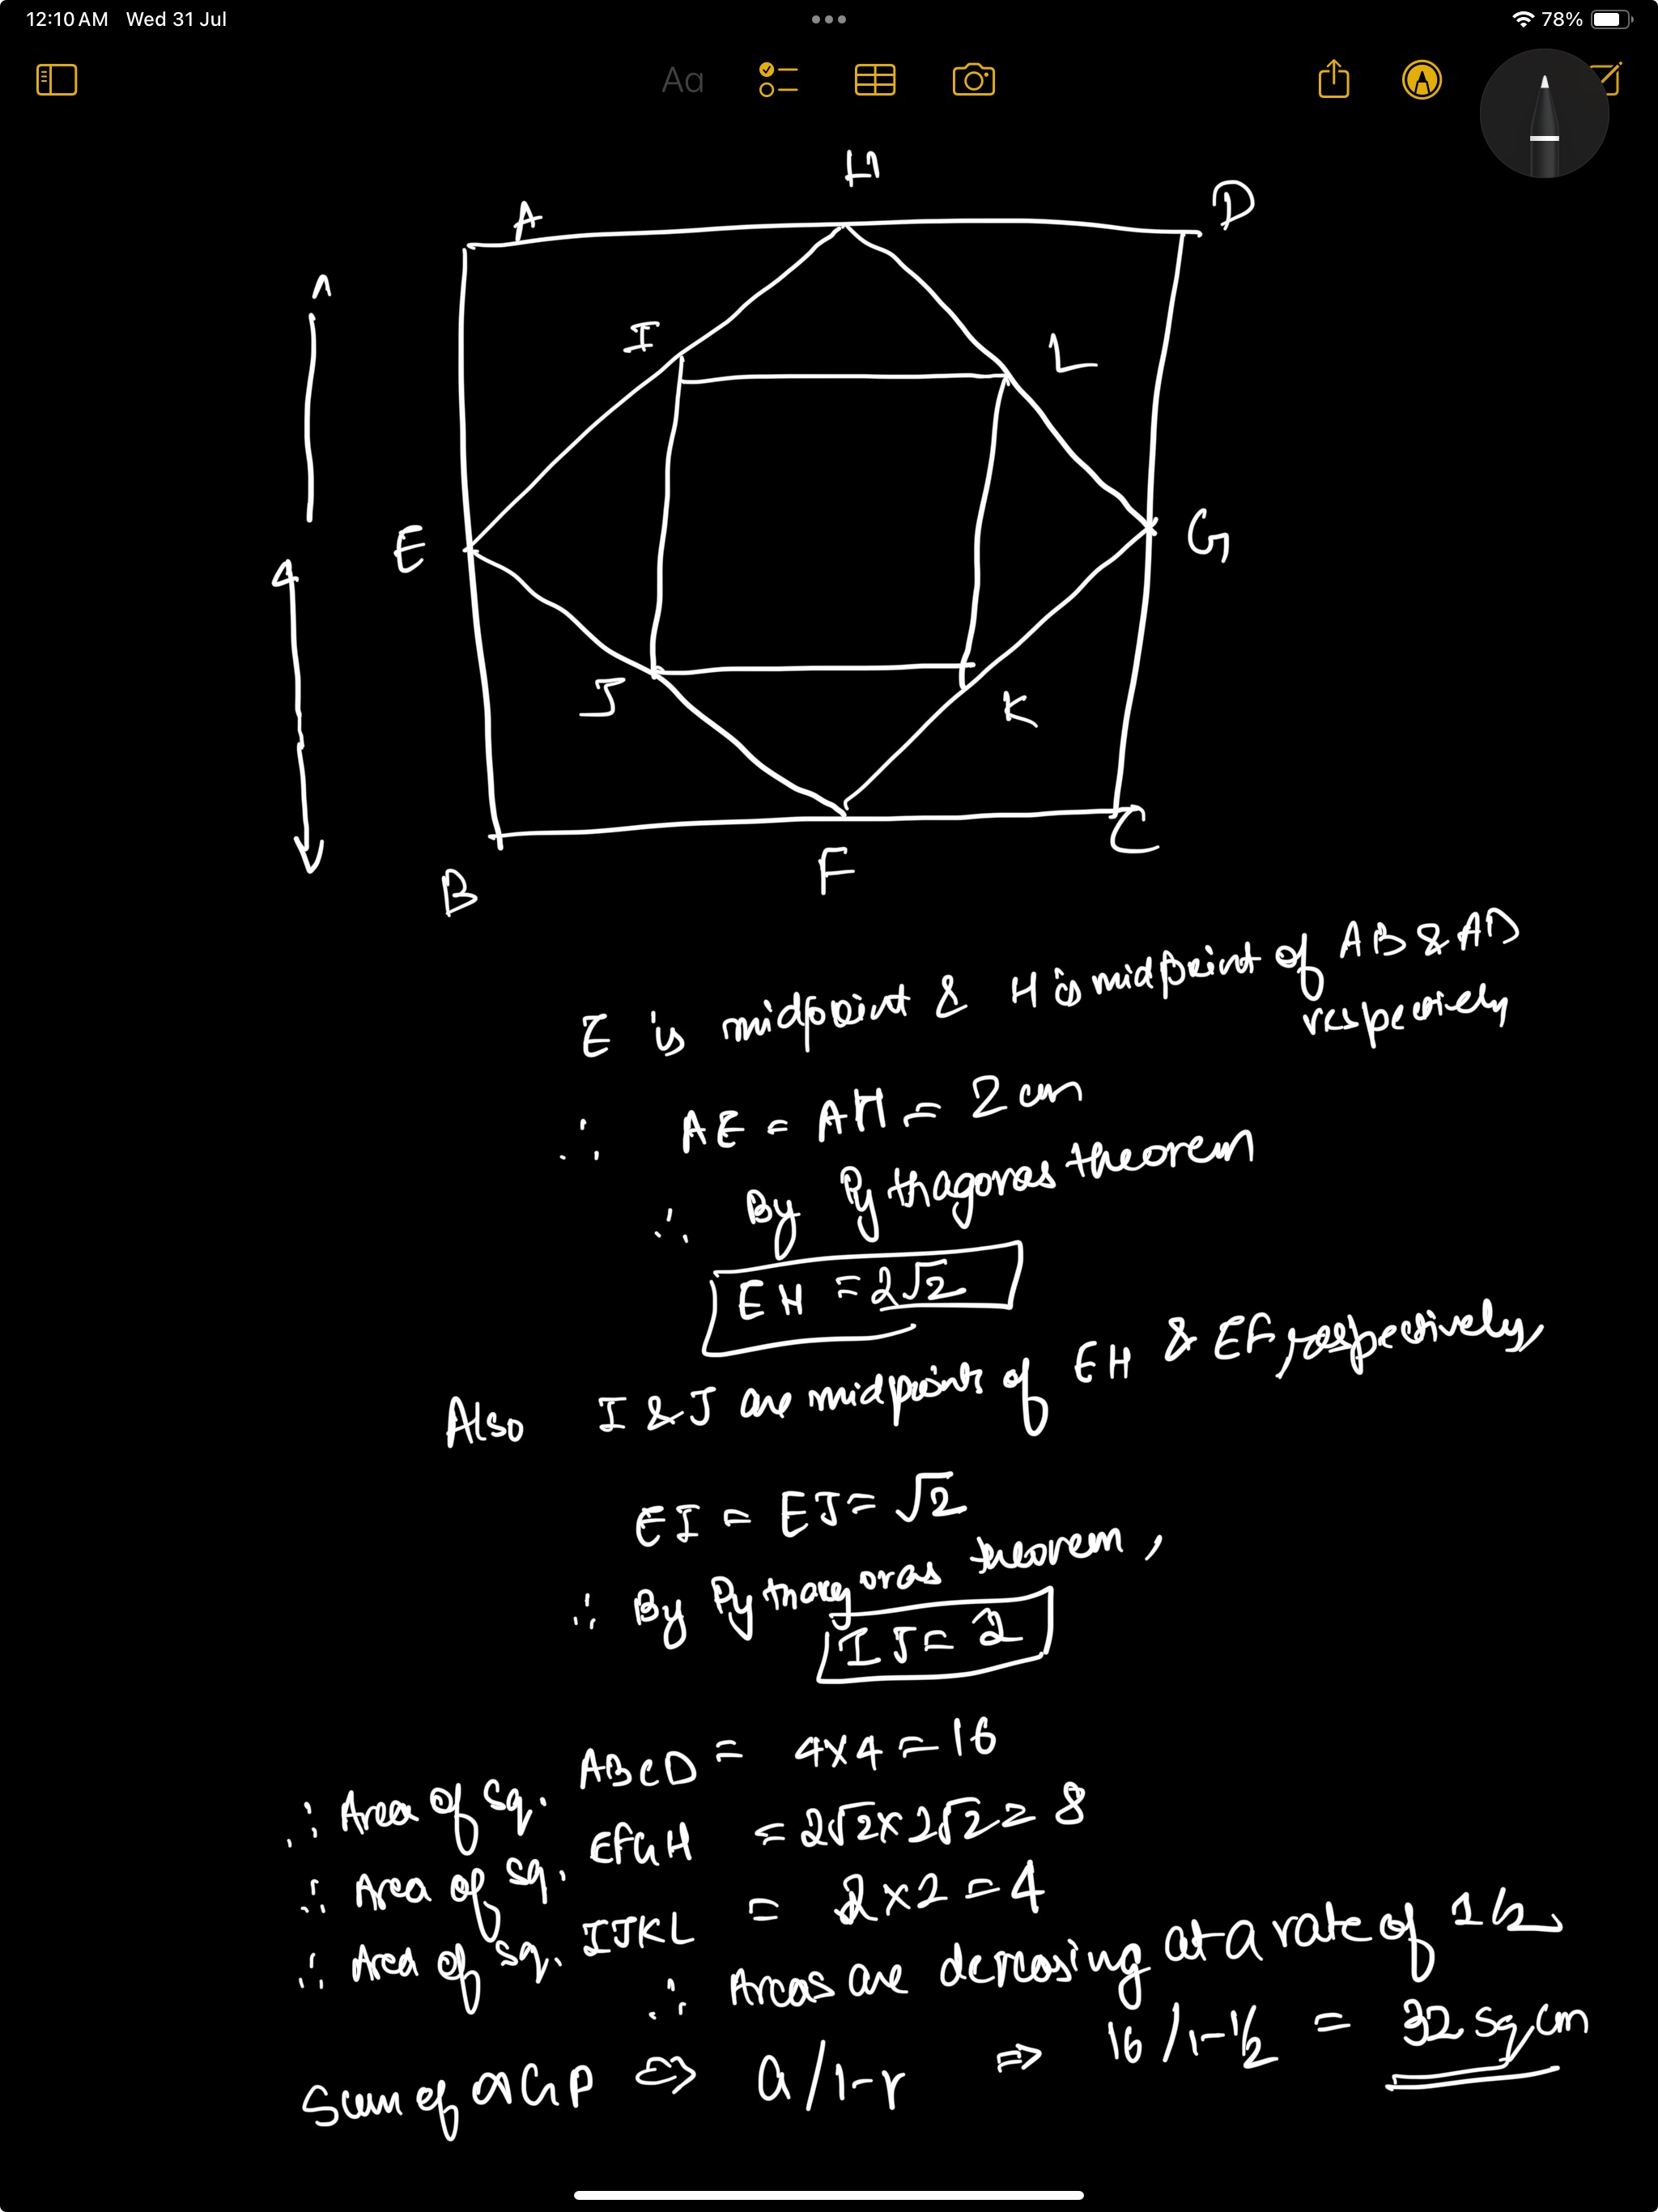 12:10 AM Wed 31 Jul
78%
Aa
H
A
D
I
L
E
G
4
J
K
C
F
B
E is midpoint & H is midpoint of AB & AD
respectively
∴ AE = AH = 2 cm
∴ By Pythagoras theorem
EH = 2√2
Also I & J are midpoints of EH & EF, respectively,
EI = EJ = √2
∴ By Pythagoras theorem,
IJ = 2
∴ Area of Sq. ABCD = 4×4 = 16
∴ Area of Sq. EFGH = 2√2×2√2 = 8
∴ Area of Sq. IJKL = 2×2 = 4
∴ Areas are decreasing at a rate of 1/2
Sum of ∞ GP ⇔ a/1-r ⇒ 16/1-1/2 = 32 sq cm